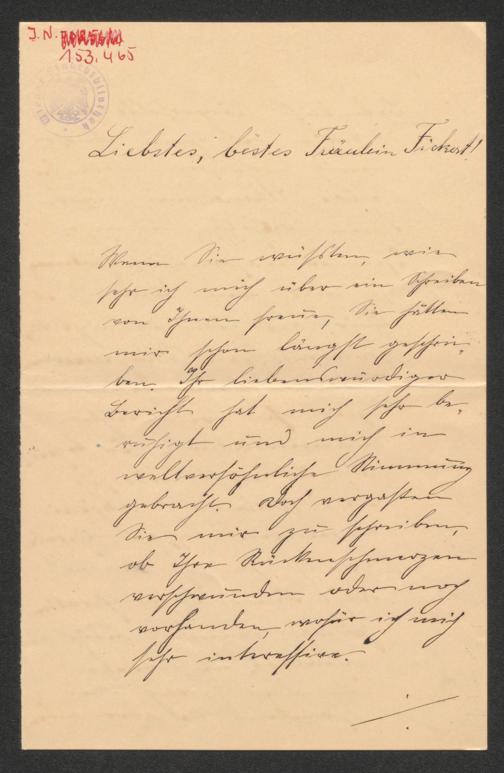 J.N.
153.465
Liebstes, bestes Fräulein Fickert!
Wenn Sie wüßten, wie
sehr ich mich über ein Schreiben
von Ihnen freue, Sie hätten
mir schon längst geschrie-
ben. Ihr liebenswürdiger
Bericht hat mich sehr be-
ruhigt und mich in
weltversöhnliche Stimmung
gebracht. Doch vergaßen
Sie mir zu schreiben,
ob Ihre Rückenschmerzen
verschwunden oder noch
vorhanden, wofür ich mich
sehr interessire.
./.